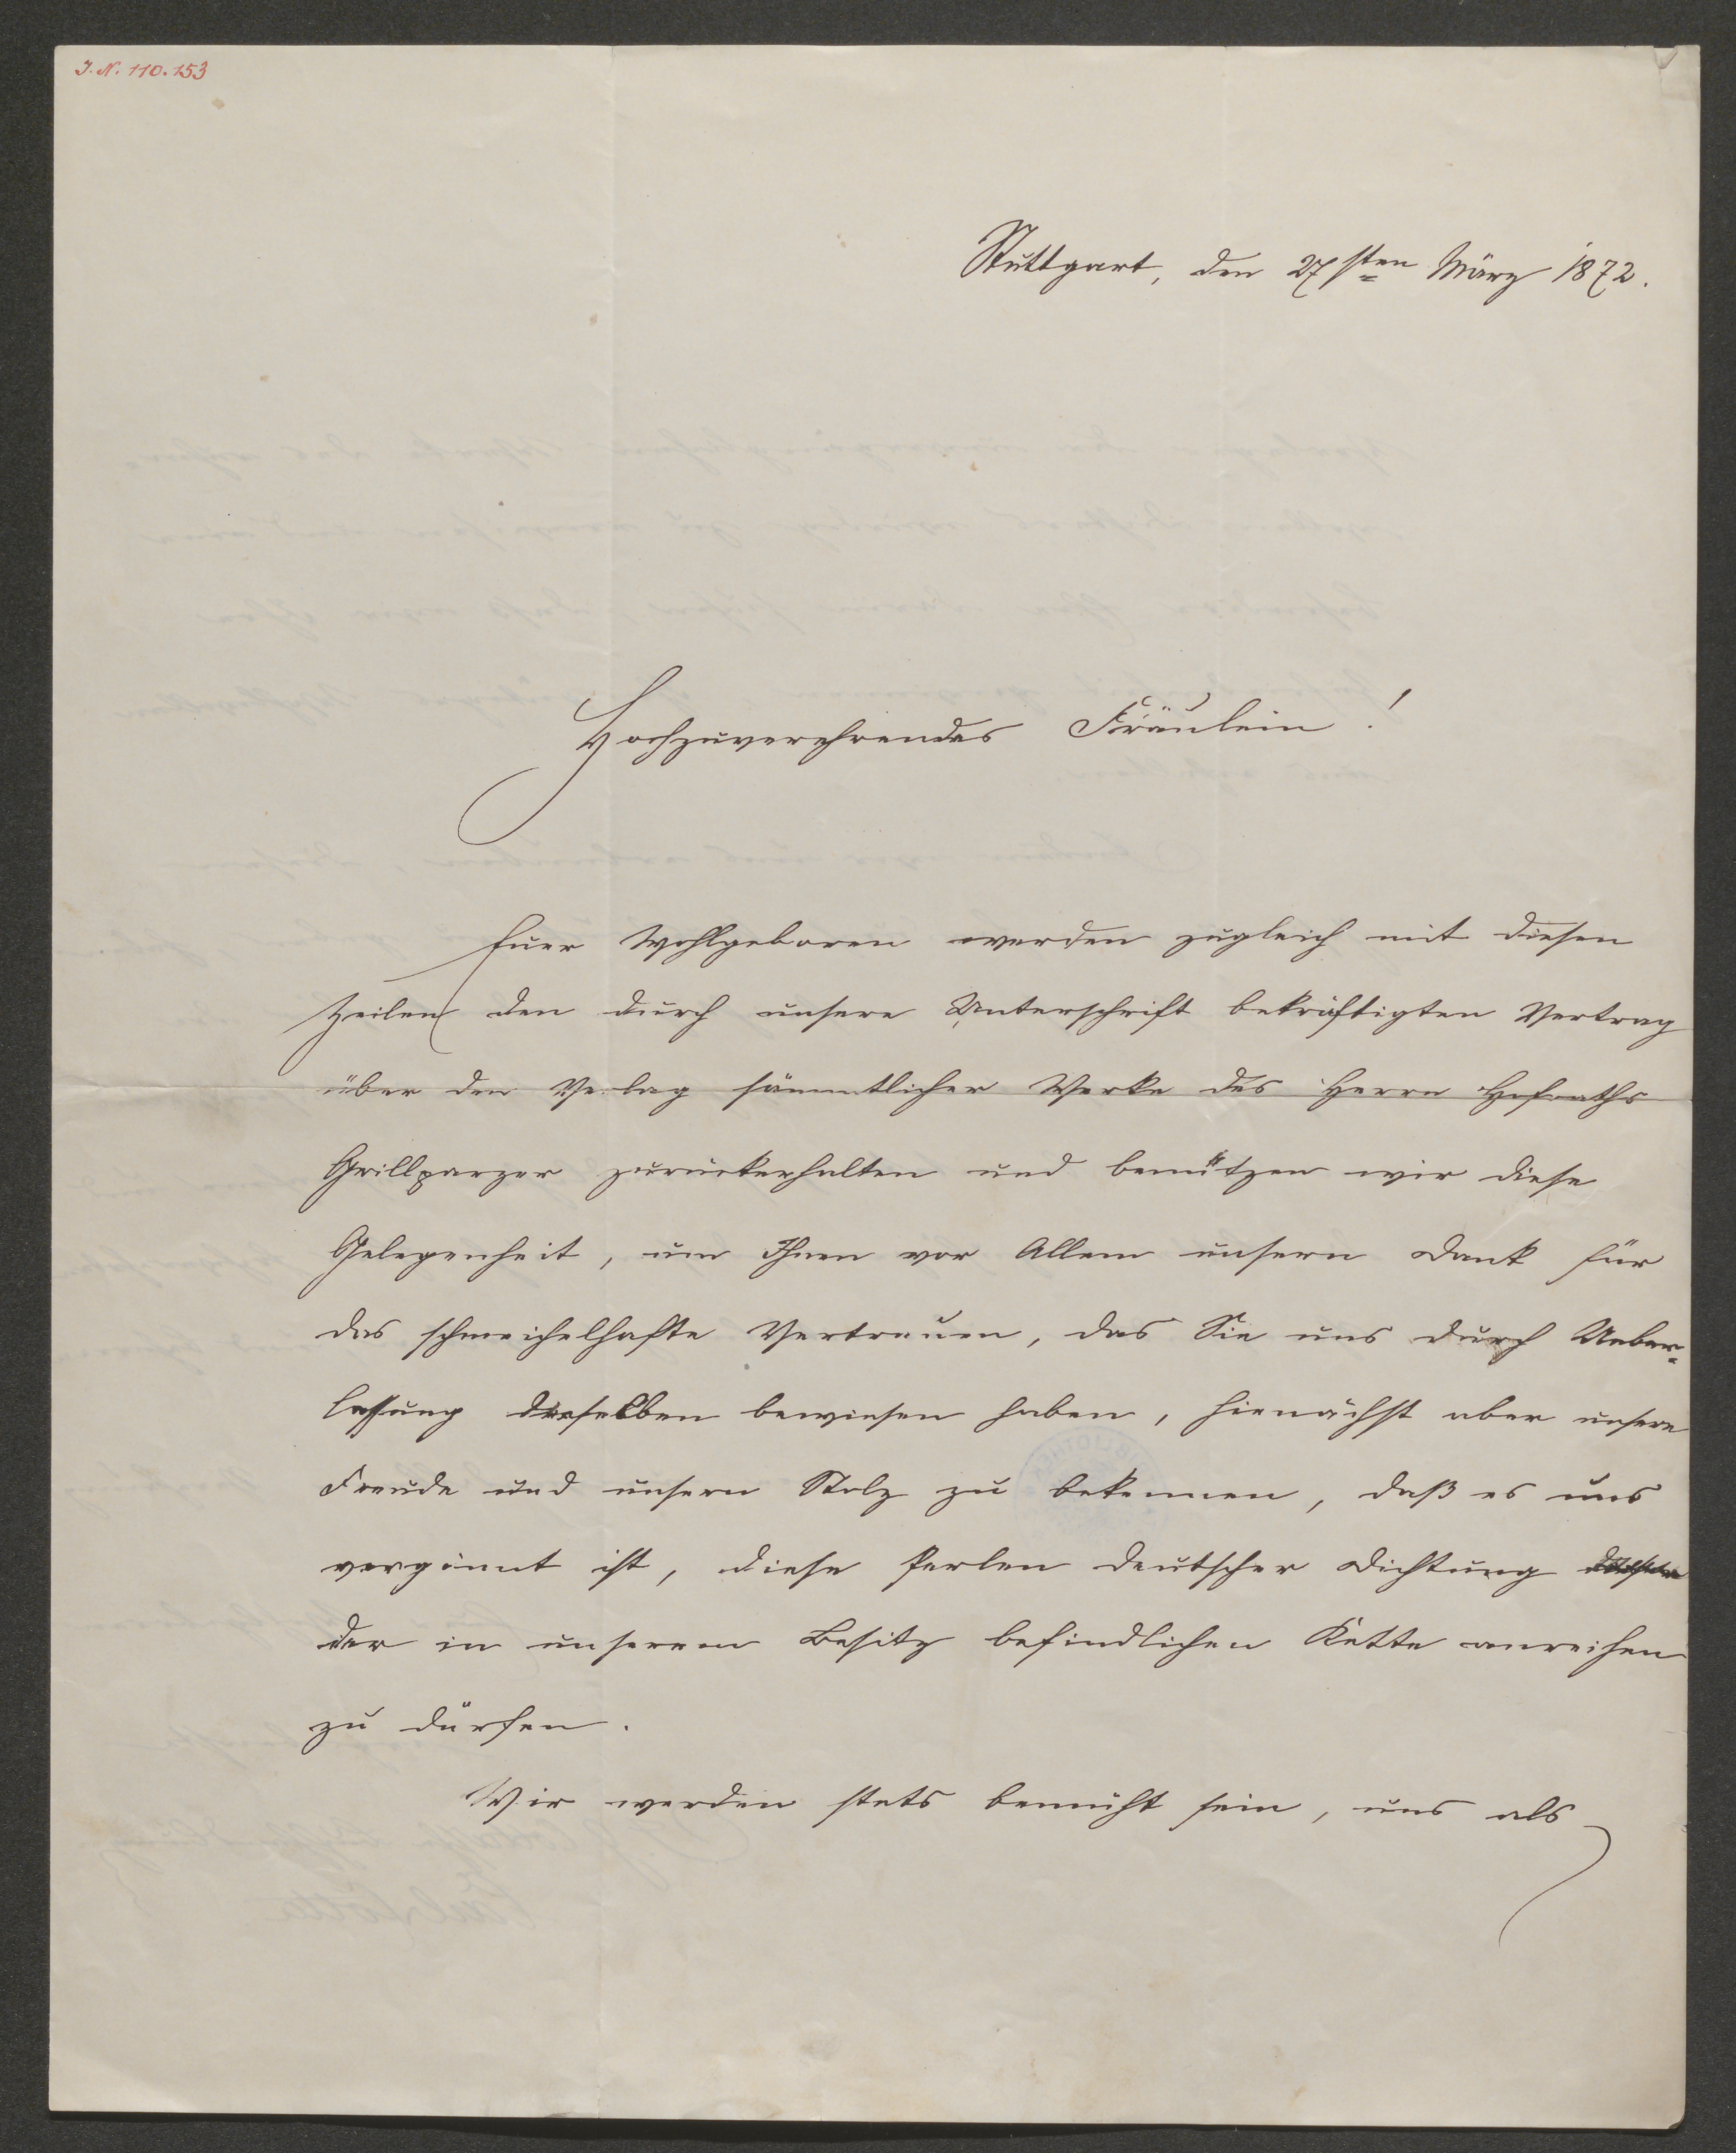 J. N. 110.153
Stuttgart, den 27sten März 1872.
Hochzuverehrendes Fräulein!
Euer Wohlgeboren werden zugleich mit diesen
Zeilen den durch unsere Unterschrift bekräftigten Vertrag
über den Verlag sämmtlicher Werke des Herrn Hofraths
Grillparzer zurückerhalten und benützen wir diese
Gelegenheit, um Ihnen vor Allem unsern Dank für
das schmeichelhafte Vertrauen, das Sie uns durch Ueber-
lassung derselben bewiesen haben, hienächst aber unsere
Freude und unsern Stolz zu bekennen, daß es uns
vergönnt ist, diese Perlen deutscher Dichtung
der in unserem Besitz befindlichen Kette anreihen
zu dürfen.
Wir werden stets bemüht sein, uns als